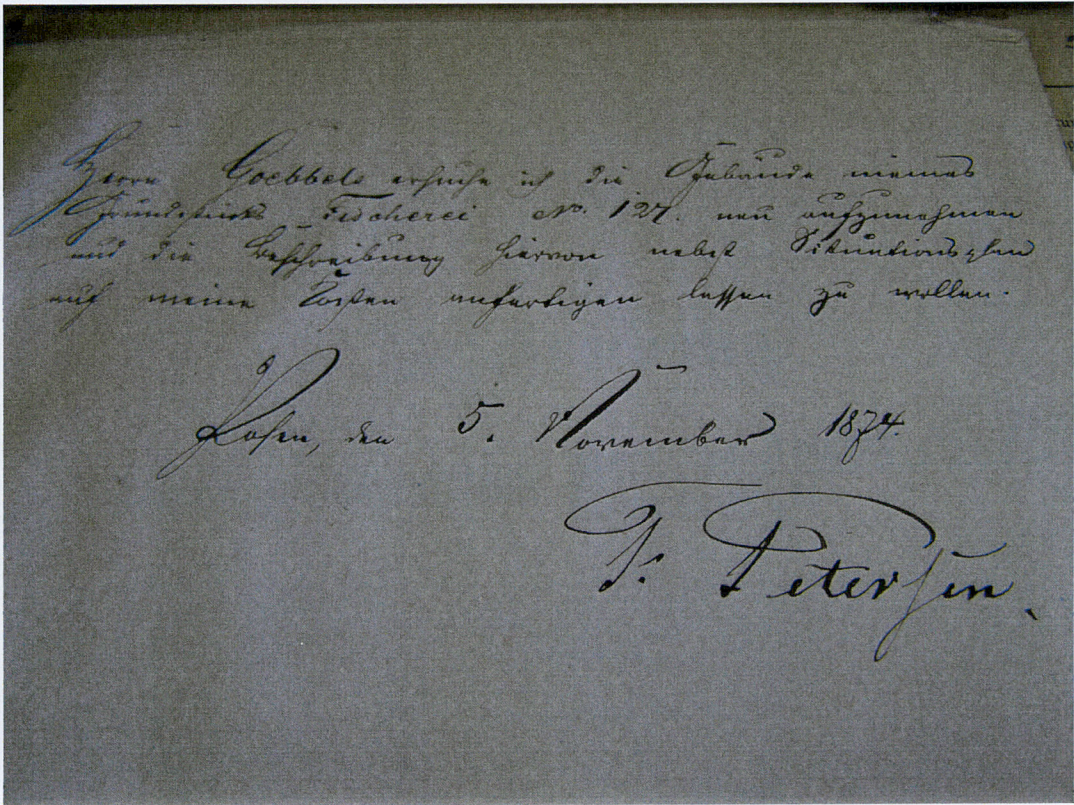 Herrn Goebbels ersuche ich die Gebäude meines
Grundstücks Fischerei No. 127. neu aufzunehmen
und die Beschreibung hiervon nebst Situationsplan
auf meine Kosten anfertigen lassen zu wollen.
Posen, den 5. November 1874.
F. Petersen.